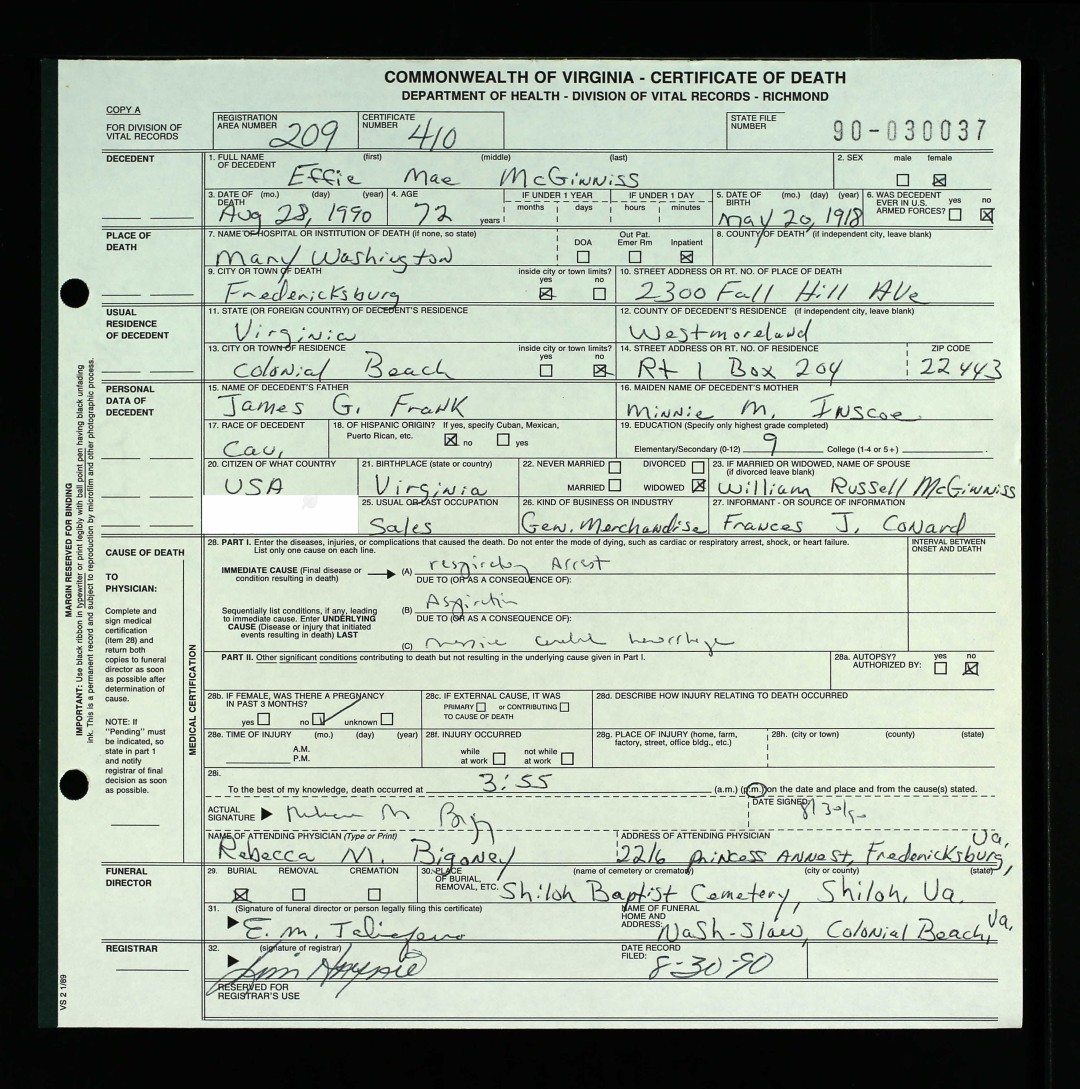 COMMONWEALTH OF VIRGINIA - CERTIFICATE OF DEATH
DEPARTMENT OF HEALTH - DIVISION OF VITAL RECORDS - RICHMOND
COPY A
FOR DIVISION OF VITAL RECORDS
REGISTRATION AREA NUMBER 209
CERTIFICATE NUMBER 410
STATE FILE NUMBER 90-030037
DECEDENT
1. FULL NAME OF DECEDENT (first) (middle) (last)
Effie Mae McGinniss
2. SEX male female
3. DATE OF DEATH (mo.) (day) (year)
Aug 28, 1990
4. AGE 72 years
IF UNDER 1 YEAR months days
IF UNDER 1 DAY hours minutes
5. DATE OF BIRTH (mo.) (day) (year)
May 20, 1918
6. WAS DECEDENT EVER IN U.S. ARMED FORCES? yes no
PLACE OF DEATH
7. NAME OF HOSPITAL OR INSTITUTION OF DEATH (if none, so state)
Mary Washington
DOA Out Pat. Emer Rm Inpatient
8. COUNTY OF DEATH (if independent city, leave blank)
9. CITY OR TOWN OF DEATH inside city or town limits? yes no
Fredericksburg
10. STREET ADDRESS OR RT. NO. OF PLACE OF DEATH
2300 Fall Hill Ave
USUAL RESIDENCE OF DECEDENT
11. STATE (OR FOREIGN COUNTRY) OF DECEDENT'S RESIDENCE
Virginia
12. COUNTY OF DECEDENT'S RESIDENCE (if independent city, leave blank)
Westmoreland
13. CITY OR TOWN OF RESIDENCE inside city or town limits? yes no
Colonial Beach
14. STREET ADDRESS OR RT. NO. OF RESIDENCE ZIP CODE
Rt 1 Box 204 22443
PERSONAL DATA OF DECEDENT
15. NAME OF DECEDENT'S FATHER
James G. Frank
16. MAIDEN NAME OF DECEDENT'S MOTHER
Minnie M. Inscoe
17. RACE OF DECEDENT
Cau.
18. OF HISPANIC ORIGIN? If yes, specify Cuban, Mexican, Puerto Rican, etc. no yes
19. EDUCATION (Specify only highest grade completed)
Elementary/Secondary (0-12) 9 College (1-4 or 5+)
20. CITIZEN OF WHAT COUNTRY
USA
21. BIRTHPLACE (state or country)
Virginia
22. NEVER MARRIED DIVORCED
MARRIED WIDOWED
23. IF MARRIED OR WIDOWED, NAME OF SPOUSE (if divorced leave blank)
William Russell McGinniss
25. USUAL OR LAST OCCUPATION
Sales
26. KIND OF BUSINESS OR INDUSTRY
Gen. Merchandise
27. INFORMANT - OR SOURCE OF INFORMATION
Frances J. Conard
CAUSE OF DEATH
TO PHYSICIAN:
Complete and sign medical certification (item 28) and return both copies to funeral director as soon as possible after determination of cause.
NOTE: If "Pending" must be indicated, so state in part 1 and notify registrar of final decision as soon as possible.
MEDICAL CERTIFICATION
28. PART I. Enter the diseases, injuries, or complications that caused the death. Do not enter the mode of dying, such as cardiac or respiratory arrest, shock, or heart failure.
List only one cause on each line.
INTERVAL BETWEEN ONSET AND DEATH
IMMEDIATE CAUSE (Final disease or condition resulting in death)
(A) respiratory Arrest
DUE TO (OR AS A CONSEQUENCE OF):
Sequentially list conditions, if any, leading to immediate cause. Enter UNDERLYING CAUSE (Disease or injury that initiated events resulting in death) LAST
(B) Aspiration
DUE TO (OR AS A CONSEQUENCE OF):
(C) massive cerebral hemorrhage
PART II. Other significant conditions contributing to death but not resulting in the underlying cause given in Part I.
28a. AUTOPSY? AUTHORIZED BY: yes no
28b. IF FEMALE, WAS THERE A PREGNANCY IN PAST 3 MONTHS?
yes no unknown
28c. IF EXTERNAL CAUSE, IT WAS
PRIMARY or CONTRIBUTING
TO CAUSE OF DEATH
28d. DESCRIBE HOW INJURY RELATING TO DEATH OCCURRED
28e. TIME OF INJURY (mo.) (day) (year)
A.M.
P.M.
28f. INJURY OCCURRED
while at work not while at work
28g. PLACE OF INJURY (home, farm, factory, street, office bldg., etc.)
28h. (city or town) (county) (state)
28i.
To the best of my knowledge, death occurred at 3:55 (a.m.) (p.m.) on the date and place and from the cause(s) stated.
ACTUAL SIGNATURE
DATE SIGNED: 8/30/90
NAME OF ATTENDING PHYSICIAN (Type or Print)
Rebecca M. Bigoney
ADDRESS OF ATTENDING PHYSICIAN
2216 Princess Anne St, Fredericksburg, Va.
FUNERAL DIRECTOR
29. BURIAL REMOVAL CREMATION
30. PLACE OF BURIAL, REMOVAL, ETC. (name of cemetery or crematory) (city or county) (state)
Shiloh Baptist Cemetery, Shiloh, Va.
31. (Signature of funeral director or person legally filing this certificate)
E. M. Taliaferro
NAME OF FUNERAL HOME AND ADDRESS:
Nash-Slaw, Colonial Beach, Va.
REGISTRAR
32. (signature of registrar)
DATE RECORD FILED: 8-30-90
RESERVED FOR REGISTRAR'S USE
VS 2 1/89
MARGIN RESERVED FOR BINDING
IMPORTANT: Use black ribbon in typewriter or print legibly with ball point pen having black unfading
ink. This is a permanent record and subject to reproduction by microfilm and other photographic process.